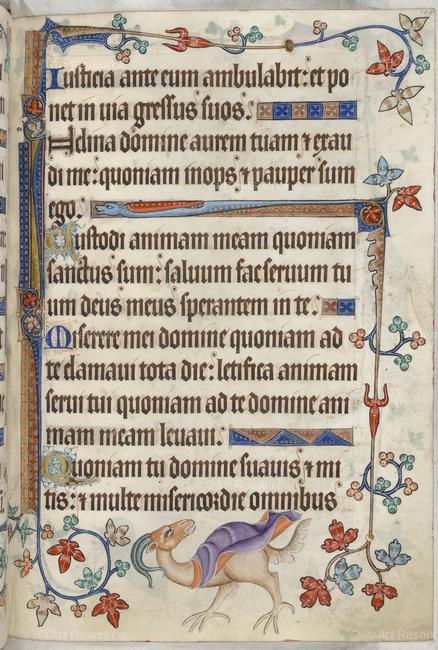 Iusticia ante eum ambulabit: et po
net in uia gressus suos.
Inclina domine aurem tuam ⁊ exau
di me: quoniam inops ⁊ pauper sum
ego.
Custodi animam meam quoniam
sanctus sum: saluum fac seruum tu
um deus meus sperantem in te.
Miserere mei domine quoniam ad
te clamaui tota die: letifica animam
serui tui quoniam ad te domine ani
mam meam leuaui.
Quoniam tu domine suauis ⁊ mi
tis: ⁊ multe misericordie omnibus
Art Resource
Art Resou